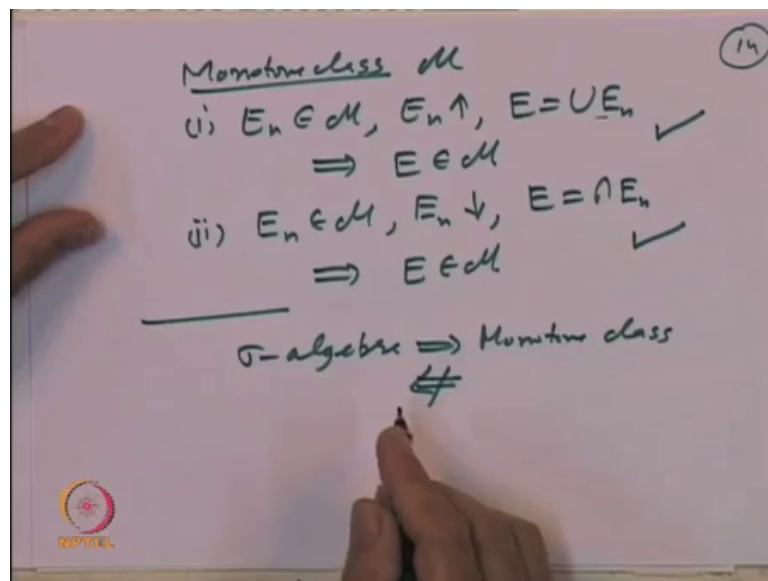 14
Monotone class M
(i) En ∈ M, En ↑, E = ∪ En ✓
⇒ E ∈ M
(ii) En ∈ M, En ↓, E = ∩ En ✓
⇒ E ∈ M
σ-algebra ⇒ Monotone class
⇍
NPTEL